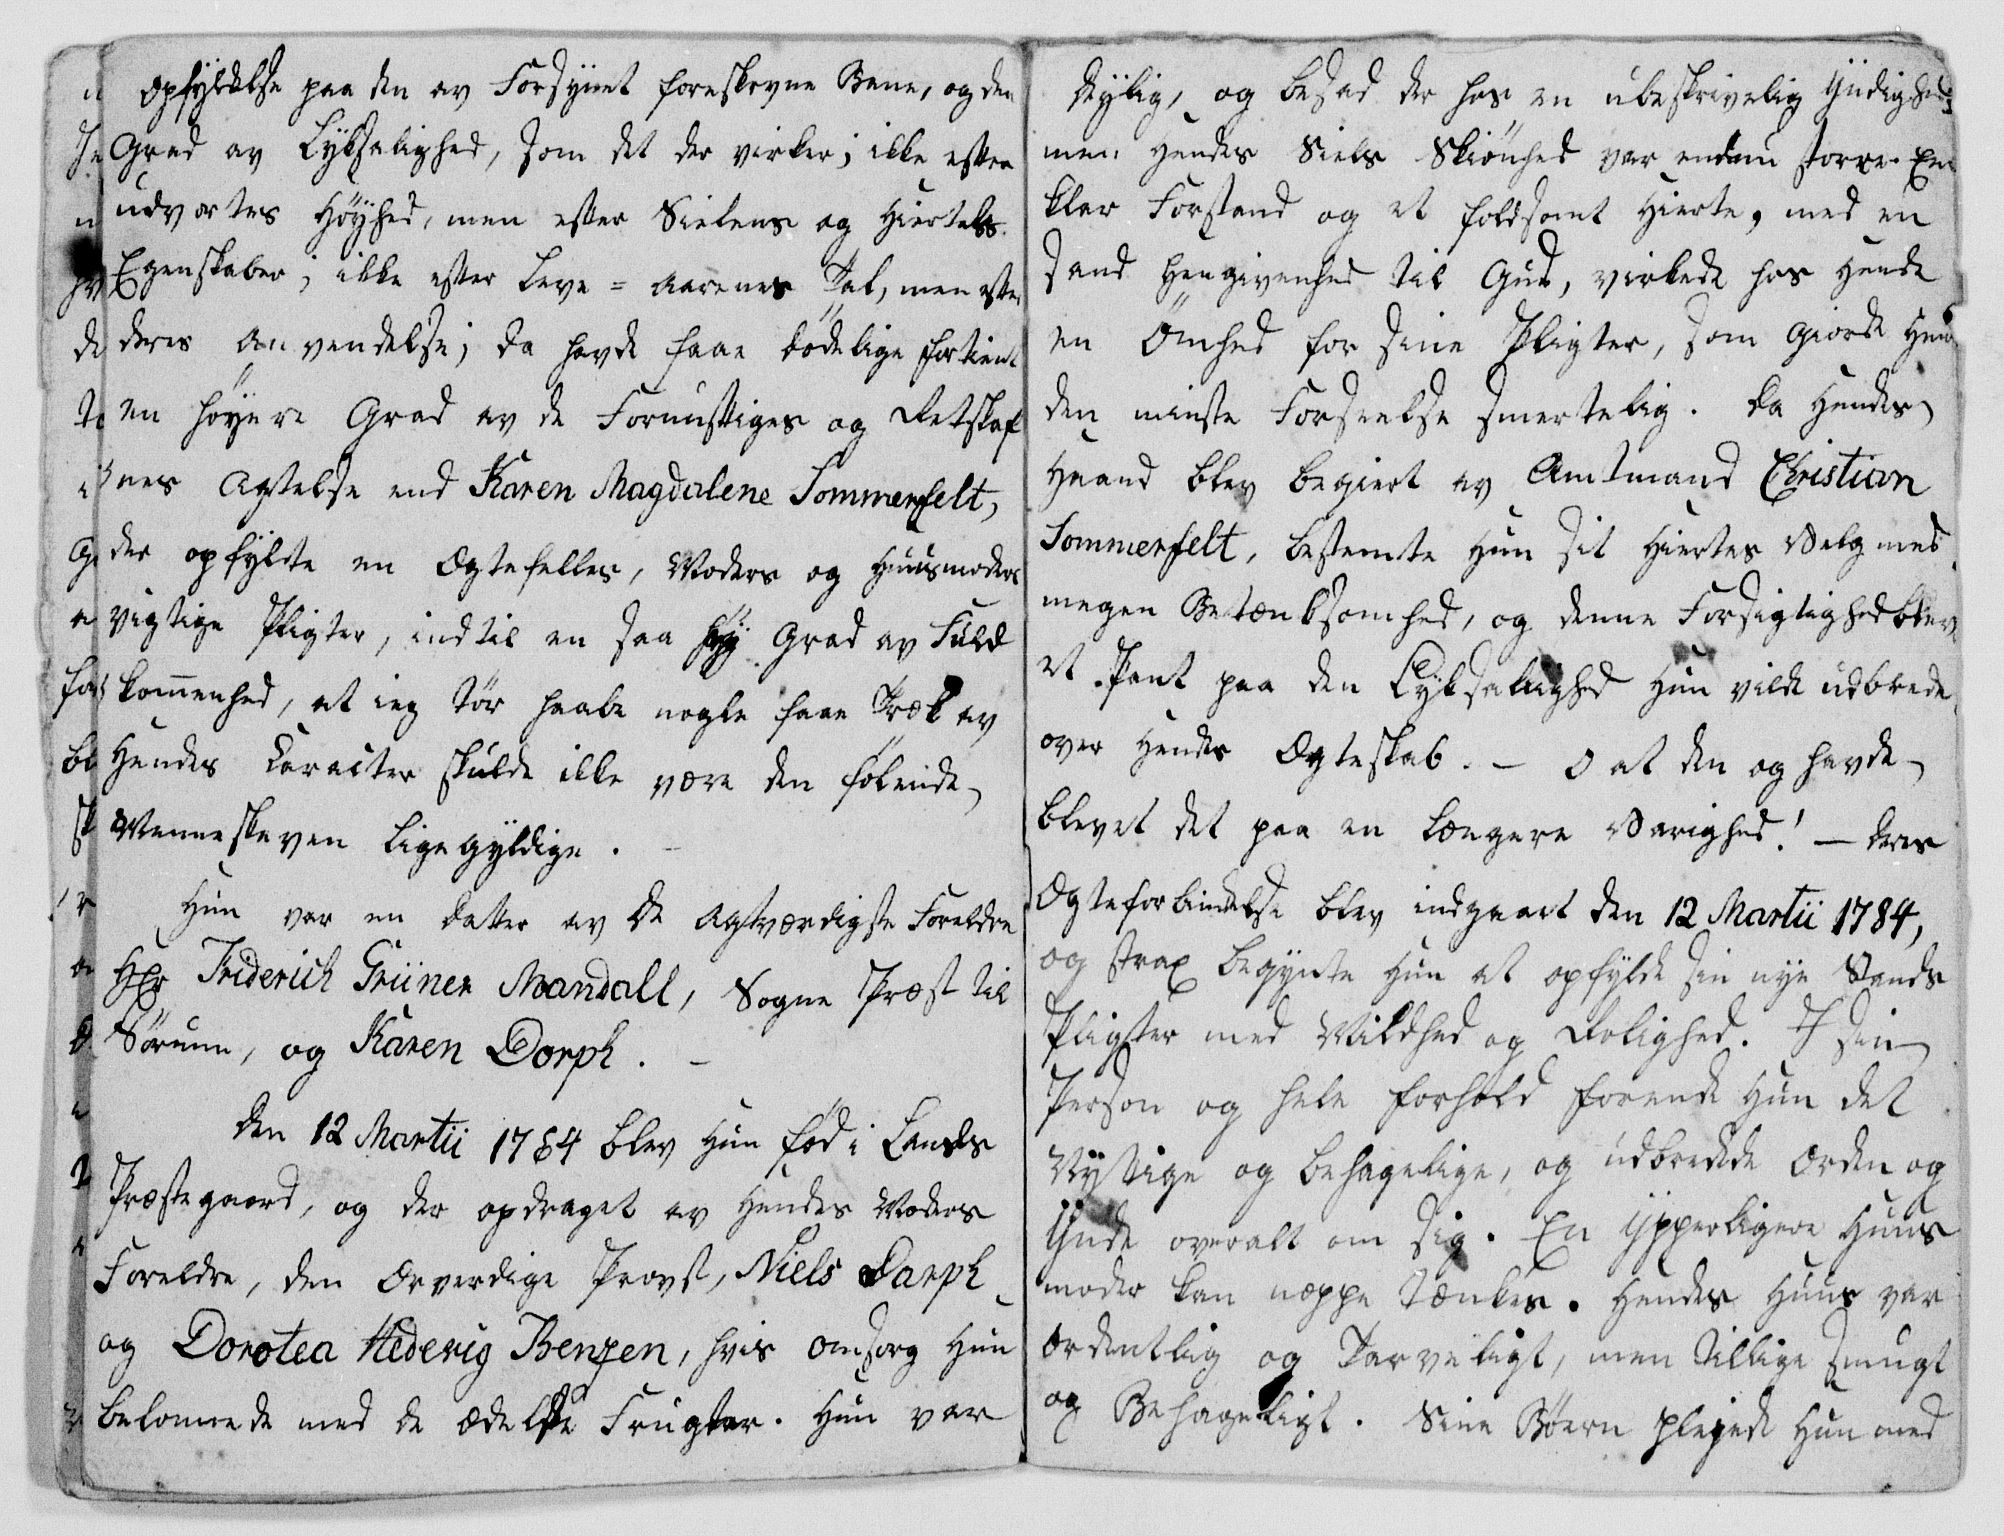 Opfyldelse paa den av Forsynet foreskrevne Bane, og den
Grad av Lyksalighed, som det der virker; ikke efter
udvortes Høyhed, men efter Sielens og Hiertets
Egenskaber; ikke efter Leve = Aarenes Tal, men efter
deres Anvendelse; da havde faae dødelige fortient
en høyere Grad av de Fornuftiges og Retskaf
nes Agtelse end Karen Magdalene Sommerfelt,
der opfyldte en Ægtefelles, Moders og Huusmoders
vigtige Pligter, indtil en saa høy Grad av Fuld
kommenhed, at ieg tør haabe nogle faae Træk av
Hendes Caracter skulde ikke være den følende
Menneskeven ligegyldige. –
Hun var en Datter av de Agtværdigste Foreldre
Hr Friderich Grüner Mandall, Sogne Præst til
Sørumm, og Karen Dorph. –
Den 12 Martii 1764 blev Hun fød i Lands
Præstegaard, og der opdraget av Hendes Moders
Foreldre, den Ærverdige Provst, Niels Darph
og Dorotea Hedevig Benzen, hvis Omsorg Hun
belønnede med de ædelste Frugter. Hun var
deylig, og besad der hos en ubeskrivelig Yndighed;
men Hendes Siels Skiønhed var endnu større. En
klar Forstand og et foldsomt Hierte, med en
sand Hengivenhed til Gud, virkede hos Hende
en Ømhed for sine Pligter, som giorde Hende
den minste Forseelse smertelig. Da Hendes
Haand blev begiert av Amtmand Christian
Sommerfelt, bestemte Hun sit Hiertes Valg med
megen Betænksomhed, og denne Forsigtighed blev
et Pant paa den Lyksalighed Hun vilde udbrede
over Hendes Ægteskab. – O at den og havde
blevet det paa en længere Varighed! – Deres
Ægteforbindelse blev indgaaet den 12 Martii 1784,
og strax begynte Hun at opfylde sin nye Stands
Pligter med Mildhed og Rolighed. I sin
Person og hele Forhold forende Hun det
Nyttige og behagelige, og udbredede Orden og
Ynde overalt om sig. En Ypperligere Huus
moder kan næppe tænkes. Hendes Huus var
Ordentlig og Tarveligt, men tillige smugt
og Behageligt. Sine Børn plejede Hun med